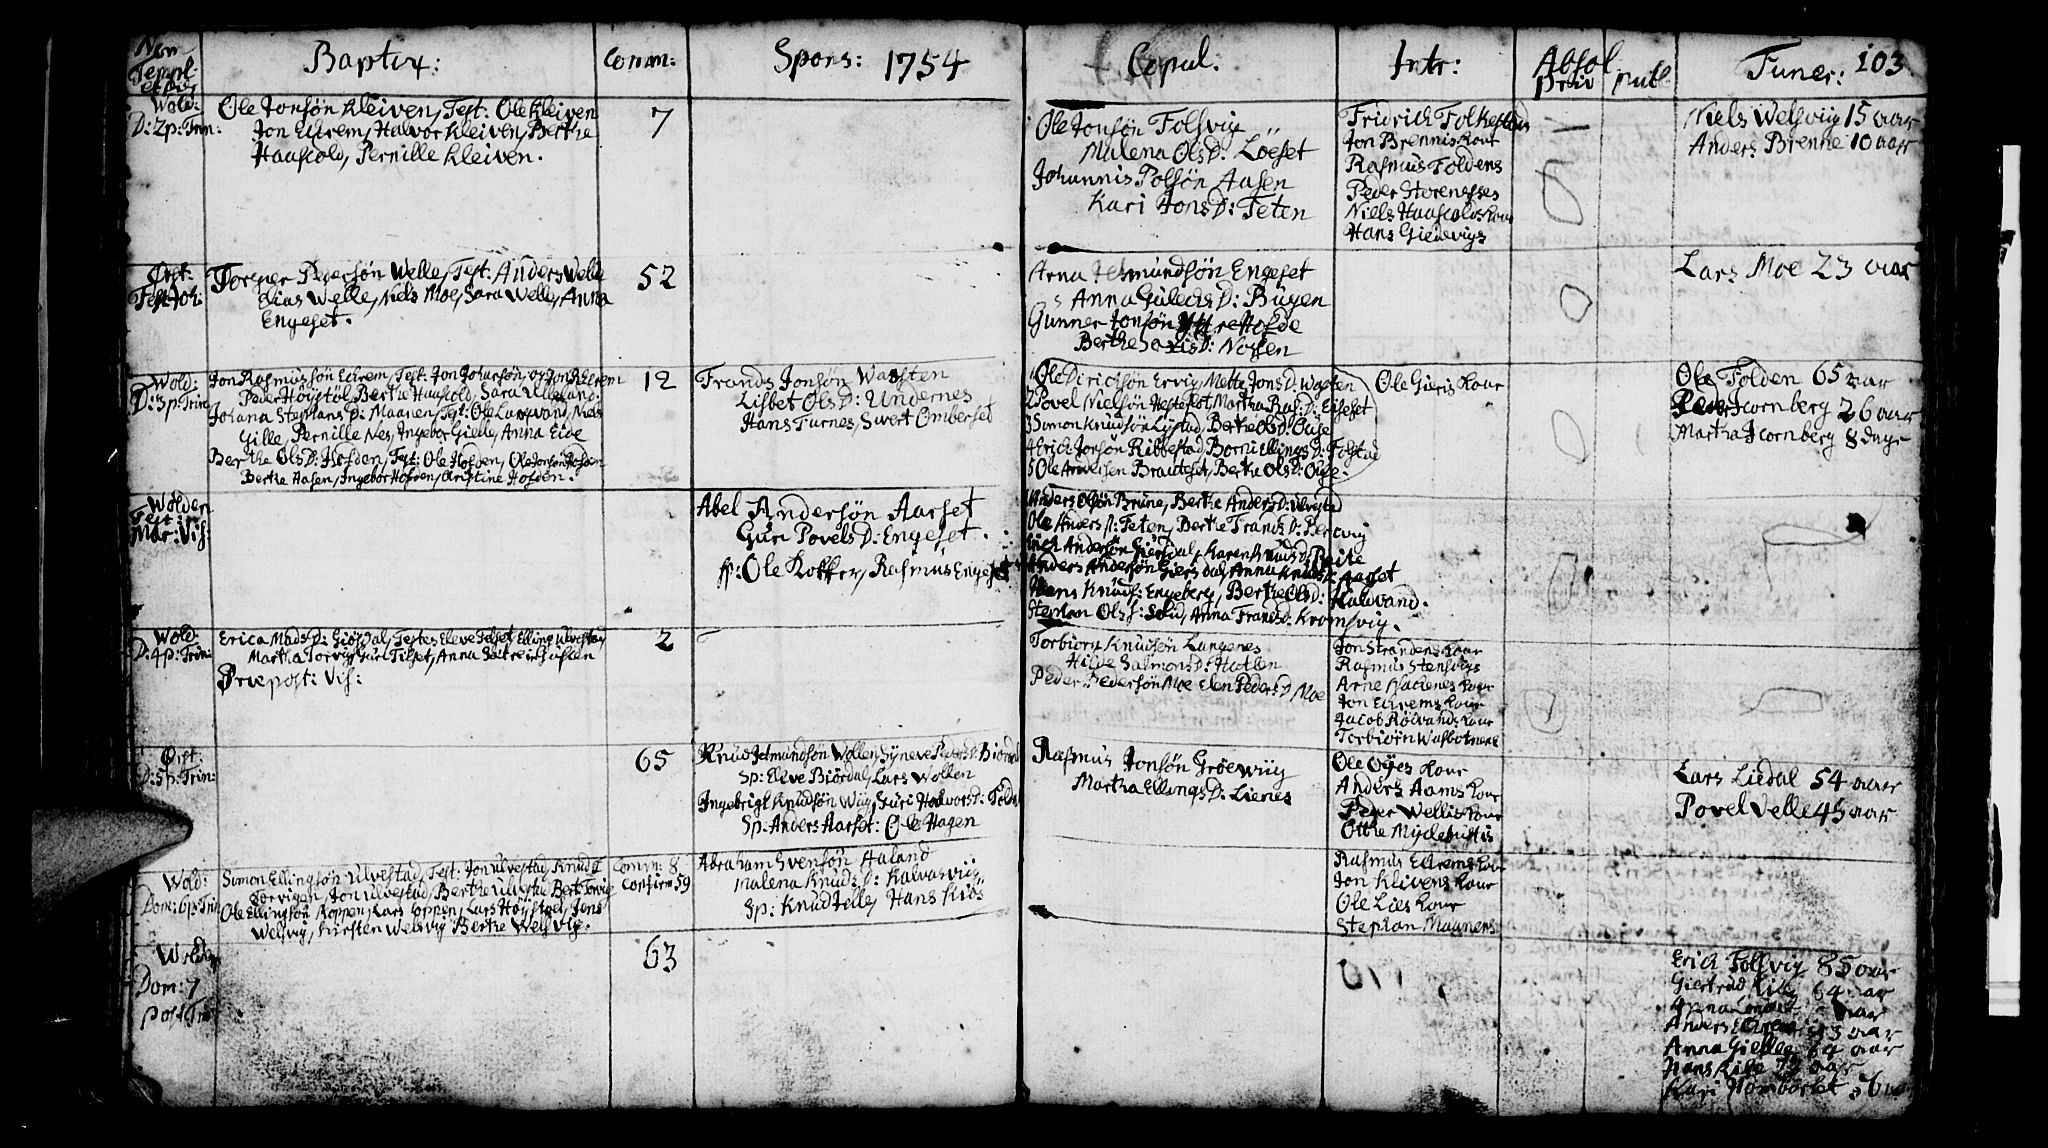 Nom Templ: et Dies
Baptiz:
Comm:
Spons: 1754
Copul.
Intr:
Absol
priv
publ
Funer:
103
Wold:
D: 2 p: Trin:
Ole Jonsøn Kleiven, Test: Ole Kleiven
Jon Echrem, Halvor Kleiven, Berthe
Haaskold, Pernille Kleiven.
7
Ole Jonsøn Folsvig
Malena Ols D: Løeset
Johannis Polsøn Aasen
Kari Jons D: Teten
Fridrich Folkestad
Jon Brennis Kone
Rasmus Foldens
Peder Storenesses
Niels Haaskolds Kone
Hans Giedevigs
Niels Welsvig 15 aar
Anders Brenne 10 aar
Ørst:
Fest: Joh:
Torger Pedersøn Welle, Test: Anders Welle
Elias Welle, Niels Moe, Sara Welle, Anna
Engeset.
52
Arna Jetmundsøn Engeset
Anna Gulechs D: Bugen
Gunner Jonsøn Yttrehofde
Berthe D: Nossen
Lars Moe 23 aar
Wold:
D: 3 p: Trin:
Jon Rasmussøn Echrem, Test: Jon Joharsøn, og Jon R Echrem
Peder Høystøl, Berthe Haaskold, Sara Ulvestad.
Johana Stephans D: Maanen, Test: Ole Lausvand, Niels
Gille, Pernille Nes, Ingebor Gielle, Anna Eide
Berthe Ols D: Hofden, Test: Ole Hofden, Ole Jonsøn Hofden
Berthe Aasen, Ingebor Hofden, Christine Hofden.
12
Frands Jonsøn Waatten
Lisbet Ols D: Undernes
Hans Furnes, Swert Omberset
1 Ole Dirichsøn Ervig, Mette Jons D: Watten
2 Povel Nielsøn Hesteflot Martha Ras: D: Eiseset
3 Simon Knudsøn Lystad, Berthe Ols D: Ouse
4 Erich Jonsøn Ribbestad, Borni Ellings D: Folstad
5 Ole Andersen Brauteset, Berthe Ols D: Ouse.
Ole Gieris Kone
Ole Folden 65 aar
Peder Hornberg 26 aar
Martha Hornberg 8 dage
Wolden
Fest:
Mar: Vis:
Abel Andersøn Aarset
Guri Povels D: Engeset.
sp: Ole Kokker, Rasmus Engeset
Anders Olsøn Brune, Berthe Anders D: Ulvestad
Ole Anders D: Teten, Berthe Frands D: Bercvig
Erich Andersøn Giersdal, Karen Knuds D: Raite
Anders Andersøn Giersdal, Anna Knuds D: Aarset
Hans Knuds: Engeberg, Berthe Ols D: Kalwand.
Stephan Ols S: Solid, Anna Frands D: Kromsvig.
Wold:
D: 4 p: Trin:
Erica Mads D: Giøsdal, Testes Eleve Telset, Elling Ulvestad
Martha Torvig, Guri Tilset, Anna
Ørie post: Vis:
2
Torbiorn Knudsøn Langenes
Hilde Salmons D: Hatlen
Peder Pedersøn Moe Elen Peders D: Moe
Jon Strandens Kone
Rasmus Stensvigs
Arne Kone
Jon Echrems Kone
Jacob Røivands Kone
Torbiørn Wasbotnens
Ørst:
D: 5 p: Trin:
65
Knud Jetmundsøn Wollen, Syneve Peders D: Biordal
Sp: Elive Biørdal, Lars Wollen
Ingebrigt Knudsøn Wiig, Guri Halvors D: Folde
Sp: Anders Aarset: Ole Hagen
Rasmus Jonsøn Grøewiig
Martha Ellings D: Lienes
Ole Oyes Kone
Anders Aams Kone
Peder Wellis Kone
Otthe Myclebustis
Lars Liedal 54 aar
Povel Velle 45 aar
Wold:
Dom: 6 p: Trin
Simon Ellingsøn Ulvestad, Test: Jon Ulvestad, Knud
Torvigen, Jon Ulvestad, Berthe Ulvestad Bert: Torvig
Ole Ellingsøn Koppen, Lars Koppen, Lars Høystøel, Jens
Welsvig, Kirsten Welsvig Berthe Welsvig.
Comm: 8
Confirm 59
Abraham Svensøn Aaland
Malena Knuds D: Kalvasviig
Sp: Knud Jelle, Hans
Rasmus Echrems Kone
Jon Klivens Kone
Ole Lies Kone
Stephan Maanens
Wolden
Dom: 7
post Trin
63
Erich Folsvig 85 aar
Giertrud 64 aar
Anna aar
Anders Echrem 33 aar
Anna Gielle 64 aar
Hans 73 aar
Kari Homborset